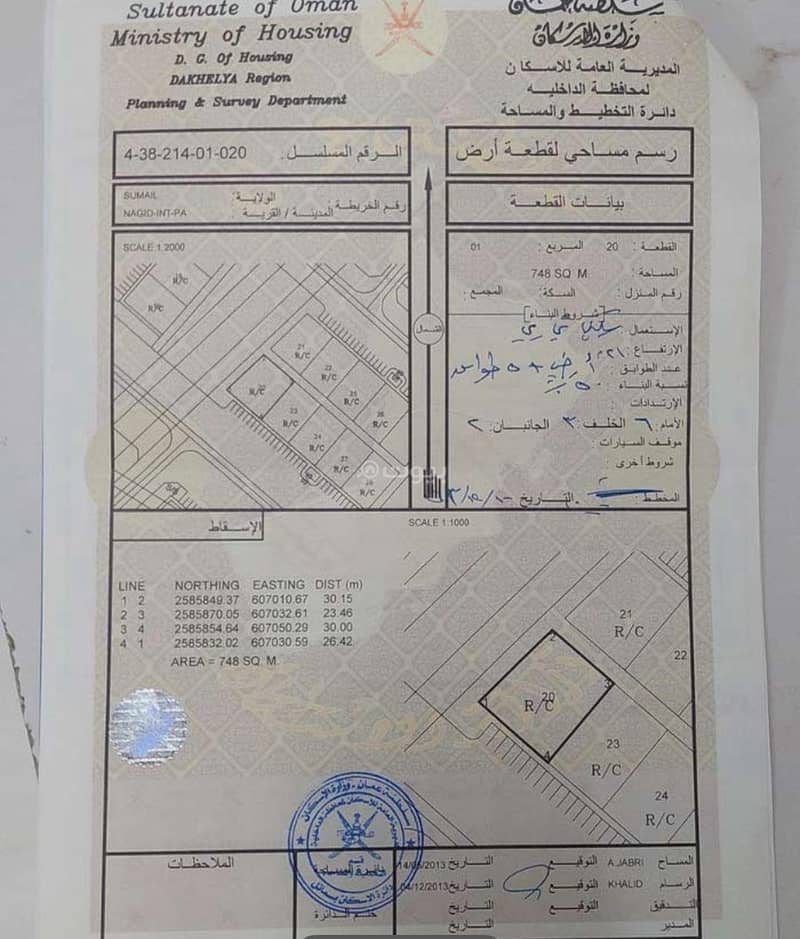 Sultanate of Oman
Ministry of Housing
D. G. Of Housing
DAKHELYA Region
Planning & Survey Department
سلطنة عمان
وزارة الإسكان
المديرية العامة للاسكان
لمحافظة الداخليه
دائرة التخطيط والمساحة
4-38-214-01-020 الرقم المسلسل:
رسم مساحي لقطعة أرض
SUMAIL الولاية:
NAGID-INT-PA المدينة / القرية: رقم الخريطة:
بيانات القطعة
SCALE 1:2000
القطعة: 20 المربع: 01
المساحة: 748 SQ. M.
رقم المنزل: السكة: المجمع:
[شروط البناء]
الإستعمال:
الإرتفاع:
عدد الطوابق: أرضي + ٥ طوابق
نسبة البناء:
الإرتدادات:
الأمام: ٦ الخلف: ٣ الجانبان: ٢
موقف السيارات:
شروط أخرى:
المخطط: التاريخ
الشمال
R/C
R/C
21
R/C
22
R/C
20
R/C
25
R/C
23
R/C
26
R/C
24
R/C
27
R/C
28
R/C
بيوت@
الإسقاط
SCALE 1:1000
LINE NORTHING EASTING DIST (m)
1 2 2585849.37 607010.67 30.15
2 3 2585870.05 607032.61 23.46
3 4 2585854.64 607050.29 30.00
4 1 2585832.02 607030.59 26.42
AREA = 748 SQ. M.
21
R/C
22
2
3
20
R/C
1
4
23
R/C
24
R/C
الملاحظات
ختم الدائرة
المساح A.JABRI التوقيع التاريخ 14/05/2013
الرسام KHALID التوقيع التاريخ 04/12/2013
التدقيق التوقيع التاريخ
المدير التاريخ
سلطنة عمان - وزارة الإسكان